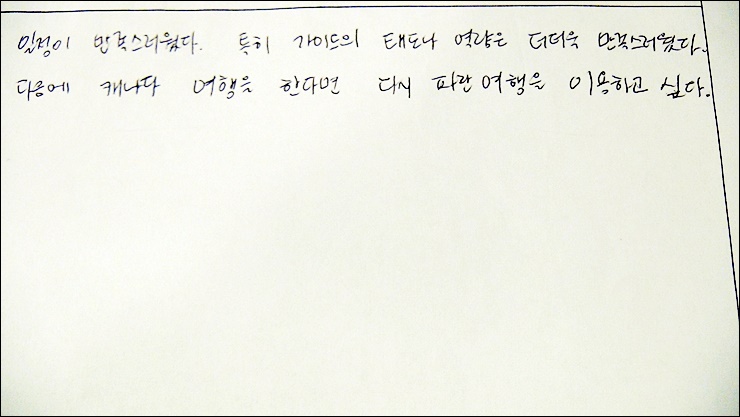 일정이 만족스러웠다. 특히 가이드의 태도나 역량은 더더욱 만족스러웠다.
다음에 캐나다 여행을 한다면 다시 파란여행을 이용하고 싶다.